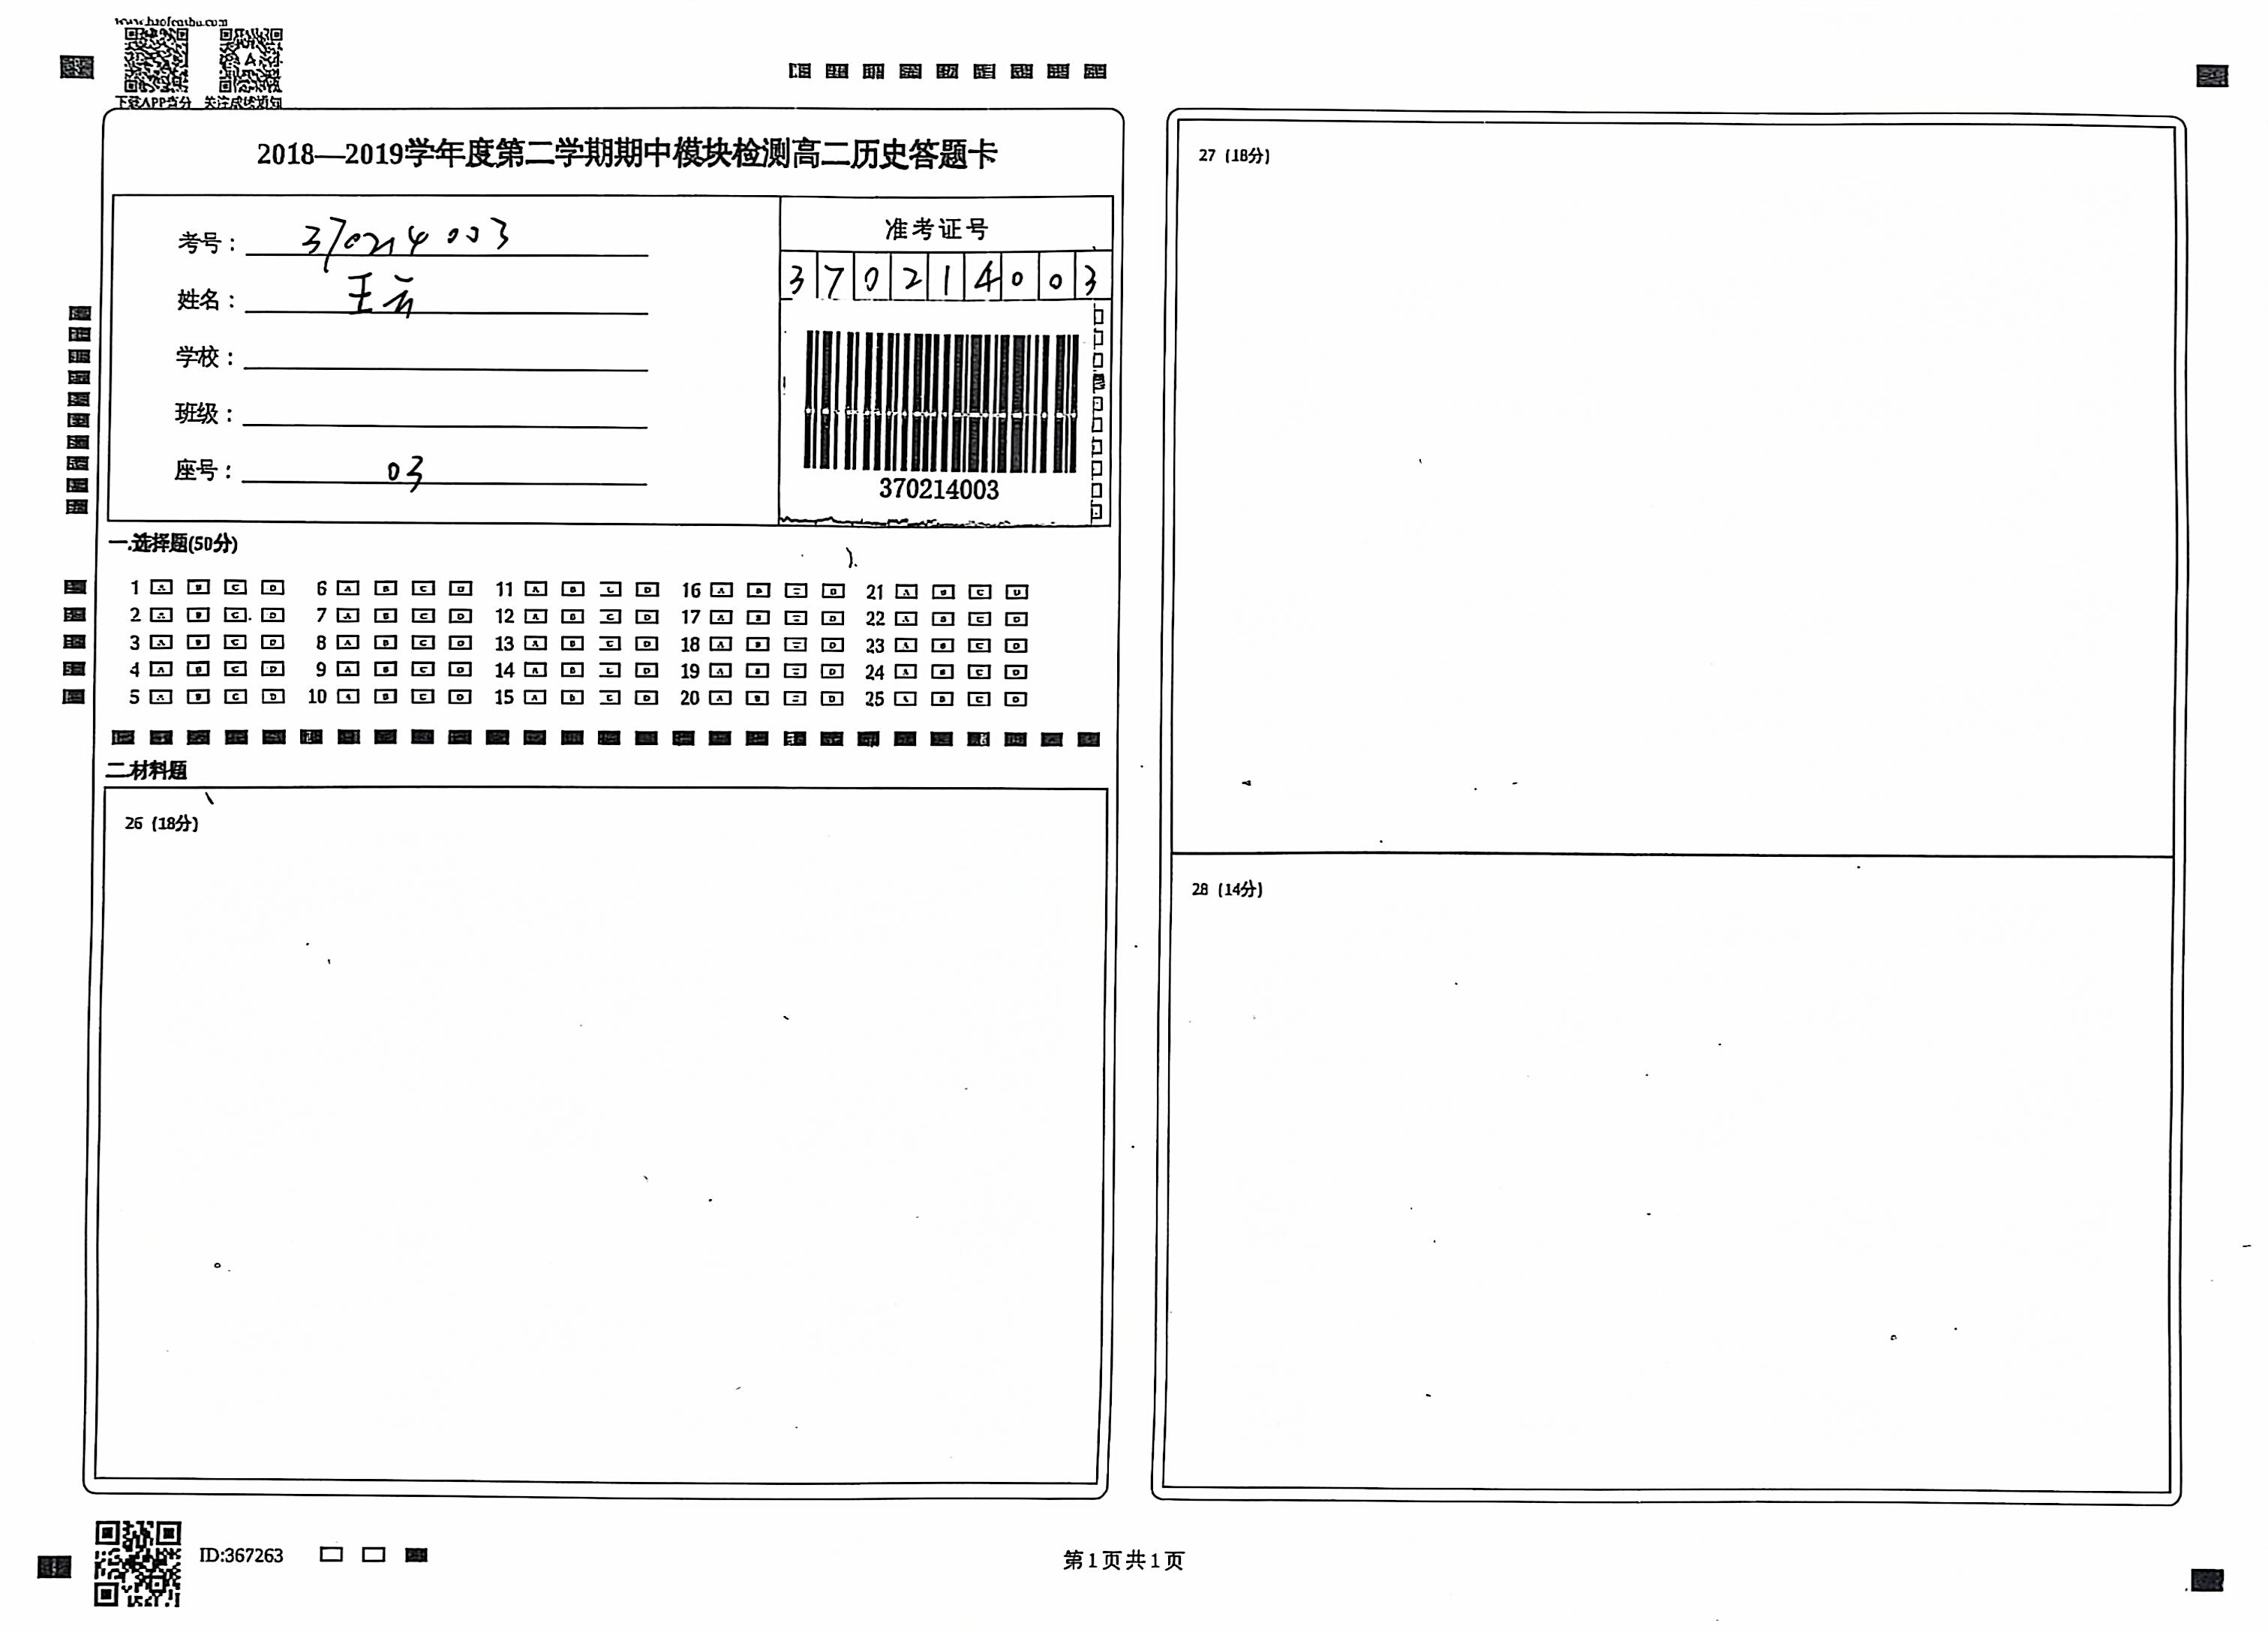 www.haofenshu.com
下载APP查分 关注成绩通知
2018—2019学年度第二学期期中模块检测高二历史答题卡
考号： 370214003
姓名： 王云
学校：
班级：
座号： 03
准考证号
3 7 0 2 1 4 0 0 3
370214003
一.选择题(50分)
1 A B C D 6 A B C D 11 A B C D 16 A B C D 21 A B C D
2 A B C D 7 A B C D 12 A B C D 17 A B C D 22 A B C D
3 A B C D 8 A B C D 13 A B C D 18 A B C D 23 A B C D
4 A B C D 9 A B C D 14 A B C D 19 A B C D 24 A B C D
5 A B C D 10 A B C D 15 A B C D 20 A B C D 25 A B C D
二.材料题
26 (18分)
27 (18分)
28 (14分)
ID:367263
第1页共1页